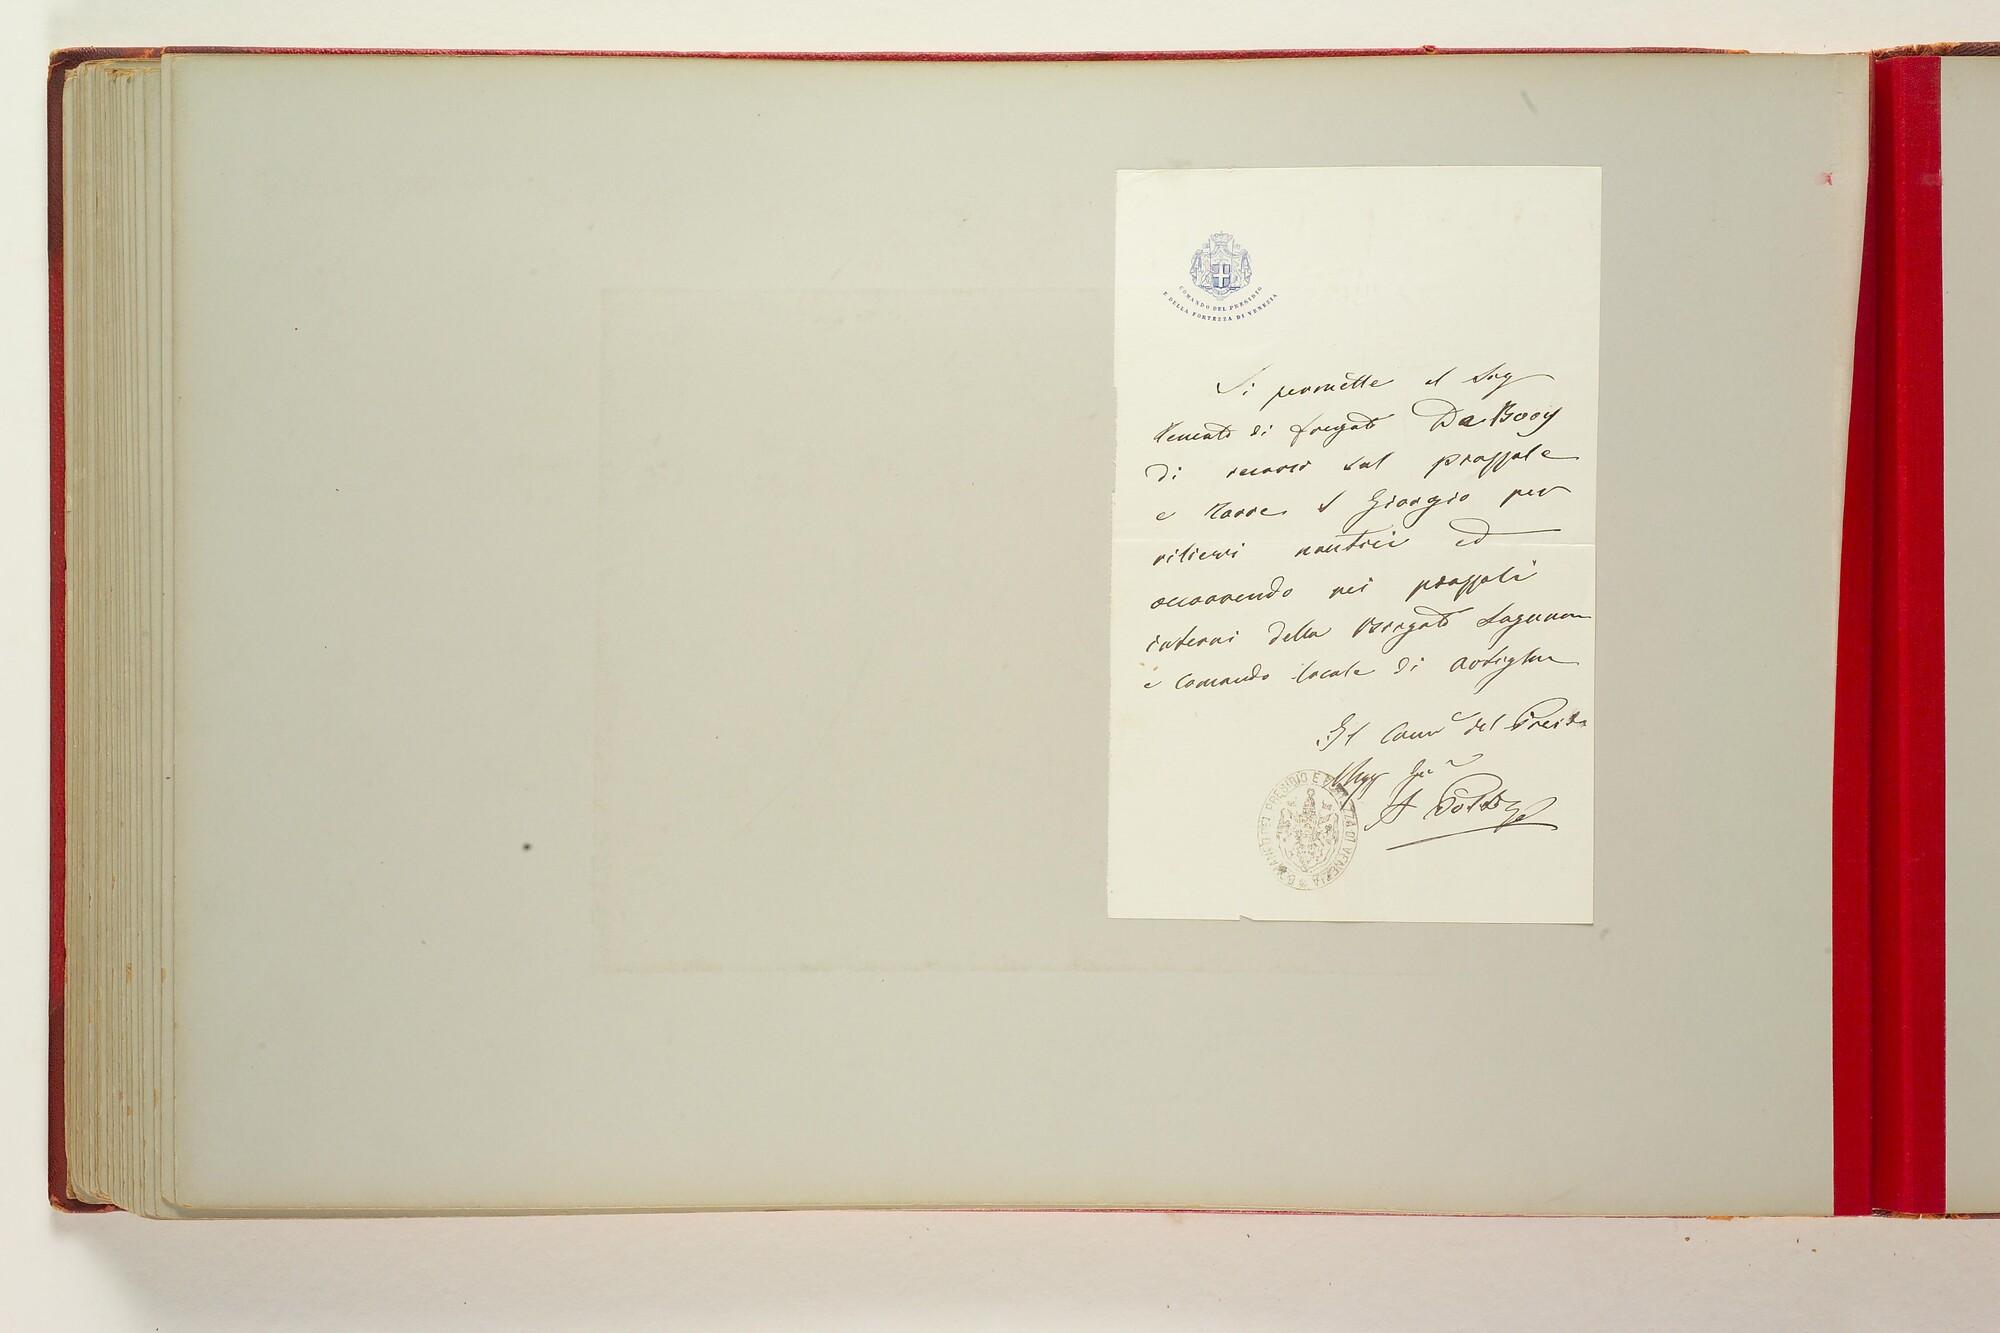 COMANDO DEL PRESIDIO
E DELLA FORTEZZA DI VENEZIA
Si permette al Sig
Tenente di fregata De Booy
di recarsi sul piazzale
e Torre S Giorgio per
rilievi nautici ed
occorrendo nei piazzali
interni della Brigata Lagunare
e comando locale di artiglia
Il Com del Presidio
Magg
A
COMANDO DEL PRESIDIO E FORTEZZA DI VENEZIA